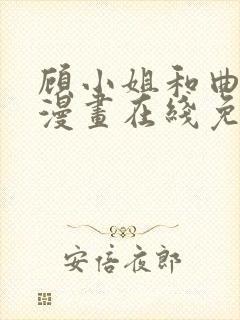 顾小姐和曲
漫畫在綫免
安倍夜郎